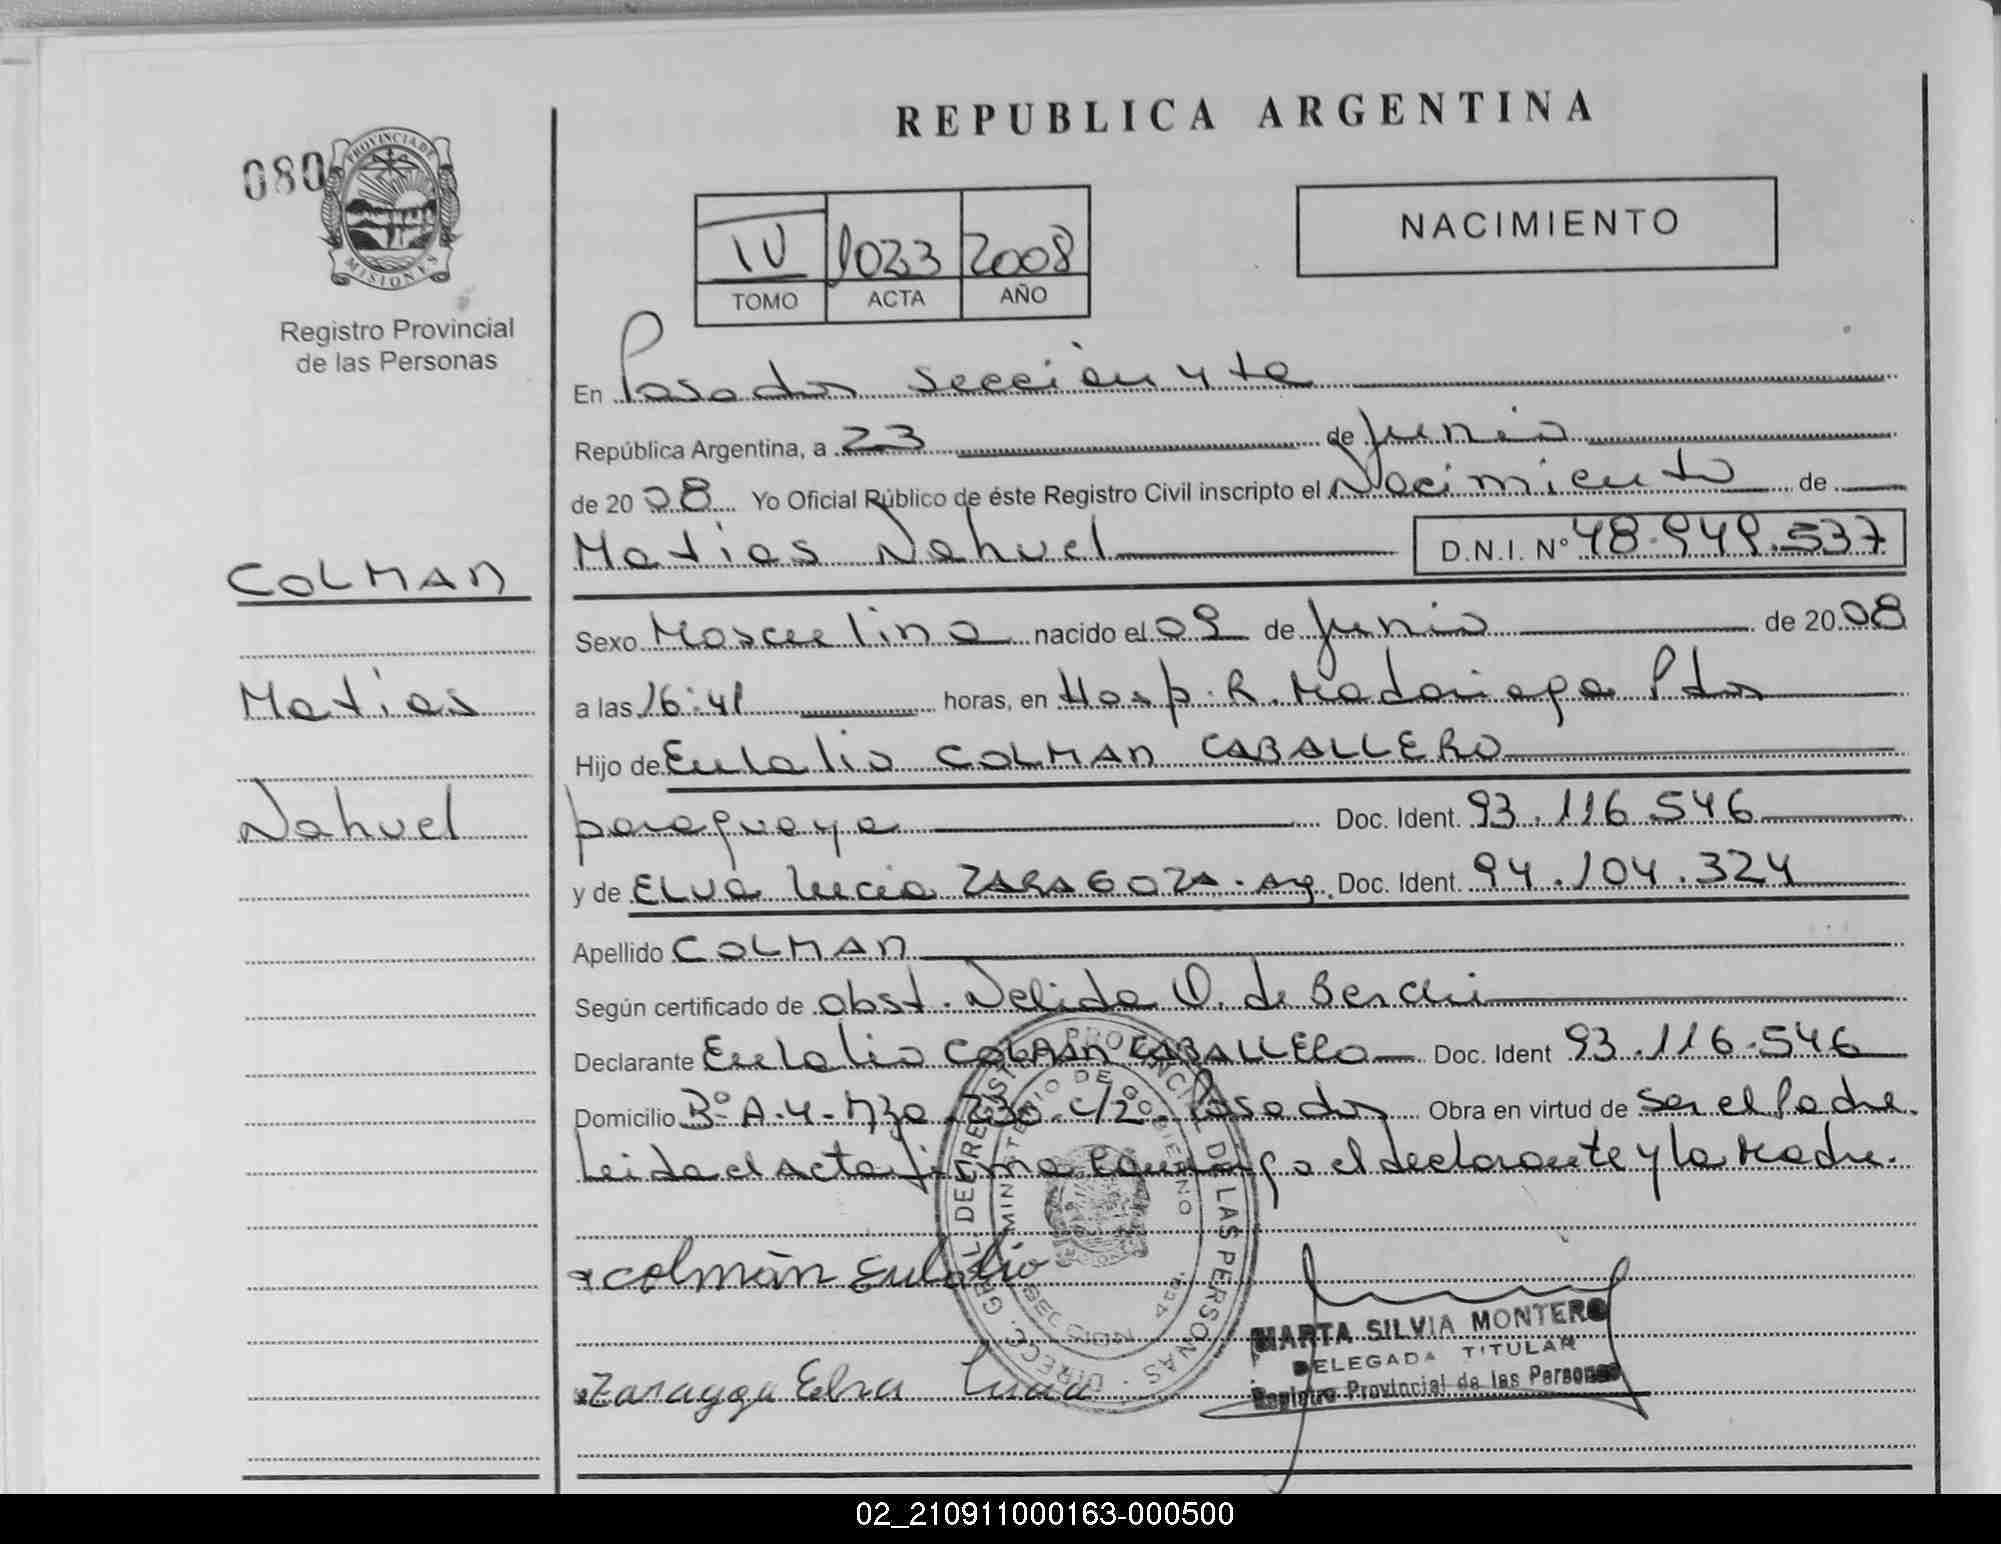 REPUBLICA ARGENTINA
080
PROVINCIA DE
MISIONES
Registro Provincial
de las Personas
NACIMIENTO
IV 1023 2008
TOMO ACTA AÑO
En Posadas Sección 4ta
República Argentina, a 23 de Junio
de 2008 Yo Oficial Público de éste Registro Civil inscripto el Nacimiento de
Matias Nahuel D.N.I. Nº 48.949.537
COLMAN
Matias
Nahuel
Sexo Masculino nacido el 09 de Junio de 2008
a las 16:41 horas, en Hosp. R. Madariaga Pdas
Hijo de Eulalio COLMAN CABALLERO
paraguaya Doc. Ident. 93.116.546
y de ELVA Lucia ZARAGOZA. Doc. Ident. 94.104.324
Apellido COLMAN
Según certificado de obst. Nelida O. de
Declarante Eulalio COLMAN CABALLERO Doc. Ident 93.116.546
Domicilio Bº A-4- 230 c/2. Posadas Obra en virtud de ser el Padre.
Leida el Acta firma conmigo el declarante y la Madre.
Colmàn Eulalio
Elva Lucia
DIRECC. GRAL. DE REGISTRO PROVINCIAL DE LAS PERSONAS
MINISTERIO DE GOBIERNO
SECCION 4ta.
MARTA SILVIA MONTERO
DELEGADA TITULAR
Registro Provincial de las Personas
02_210911000163-000500